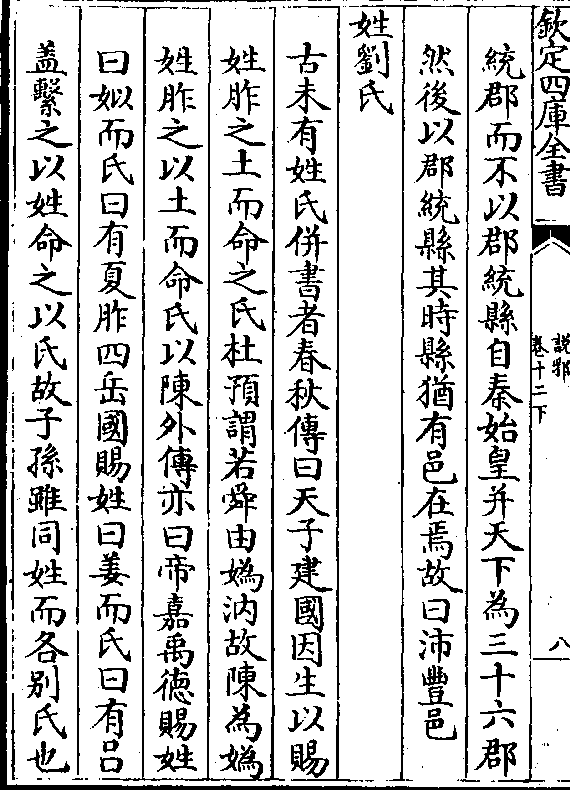 欽定四庫全書
說郛
卷十二下
八
統郡而不以郡統縣自秦始皇并天下為三十六郡
然後以郡統縣其時縣猶有邑在焉故曰沛豐邑
姓劉氏
古未有姓氏併書者春秋傳曰天子建國因生以賜
姓胙之土而命之氏杜預謂若舜由媯汭故陳為媯
姓胙之以土而命氏以陳外傳亦曰帝嘉禹德賜姓
曰姒而氏曰有夏胙四岳國賜姓曰姜而氏曰有呂
盖繫之以姓命之以氏故子孫雖同姓而各别氏也